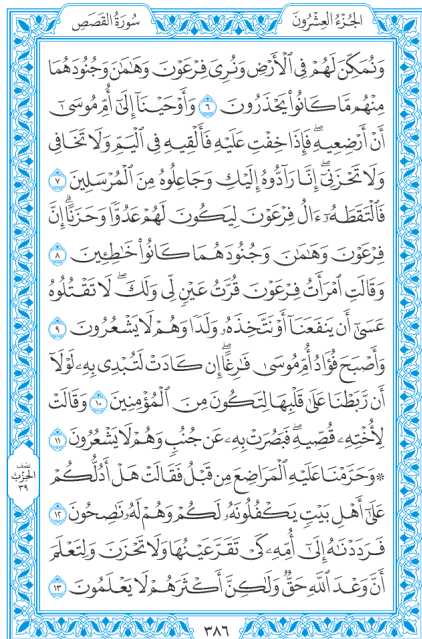 الجُزْءُ العِشْرُونَ
سُورَةُ القَصَصِ
وَنُمَكِّنَ لَهُمْ فِي ٱلْأَرْضِ وَنُرِيَ فِرْعَوْنَ وَهَٰمَٰنَ وَجُنُودَهُمَا
مِنْهُم مَّا كَانُوا۟ يَحْذَرُونَ ٦ وَأَوْحَيْنَآ إِلَىٰٓ أُمِّ مُوسَىٰٓ
أَنْ أَرْضِعِيهِ ۖ فَإِذَا خِفْتِ عَلَيْهِ فَأَلْقِيهِ فِي ٱلْيَمِّ وَلَا تَخَافِي
وَلَا تَحْزَنِيٓ ۖ إِنَّا رَآدُّوهُ إِلَيْكِ وَجَاعِلُوهُ مِنَ ٱلْمُرْسَلِينَ ٧
فَٱلْتَقَطَهُۥٓ ءَالُ فِرْعَوْنَ لِيَكُونَ لَهُمْ عَدُوًّا وَحَزَنًا ۗ إِنَّ
فِرْعَوْنَ وَهَٰمَٰنَ وَجُنُودَهُمَا كَانُوا۟ خَٰطِـِٔينَ ٨
وَقَالَتِ ٱمْرَأَتُ فِرْعَوْنَ قُرَّتُ عَيْنٍ لِّي وَلَكَ ۖ لَا تَقْتُلُوهُ
عَسَىٰٓ أَن يَنفَعَنَآ أَوْ نَتَّخِذَهُۥ وَلَدًا وَهُمْ لَا يَشْعُرُونَ ٩
وَأَصْبَحَ فُؤَادُ أُمِّ مُوسَىٰ فَٰرِغًا ۖ إِن كَادَتْ لَتُبْدِي بِهِۦ لَوْلَآ
أَن رَّبَطْنَا عَلَىٰ قَلْبِهَا لِتَكُونَ مِنَ ٱلْمُؤْمِنِينَ ١٠ وَقَالَتْ
لِأُخْتِهِۦ قُصِّيهِ ۖ فَبَصُرَتْ بِهِۦ عَن جُنُبٍ وَهُمْ لَا يَشْعُرُونَ ١١
* وَحَرَّمْنَا عَلَيْهِ ٱلْمَرَاضِعَ مِن قَبْلُ فَقَالَتْ هَلْ أَدُلُّكُمْ
عَلَىٰٓ أَهْلِ بَيْتٍ يَكْفُلُونَهُۥ لَكُمْ وَهُمْ لَهُۥ نَٰصِحُونَ ١٢
فَرَدَدْنَٰهُ إِلَىٰٓ أُمِّهِۦ كَيْ تَقَرَّ عَيْنُهَا وَلَا تَحْزَنَ وَلِتَعْلَمَ
أَنَّ وَعْدَ ٱللَّهِ حَقٌّ وَلَٰكِنَّ أَكْثَرَهُمْ لَا يَعْلَمُونَ ١٣
نصف
الحِزْب
٣٩
٣٨٦